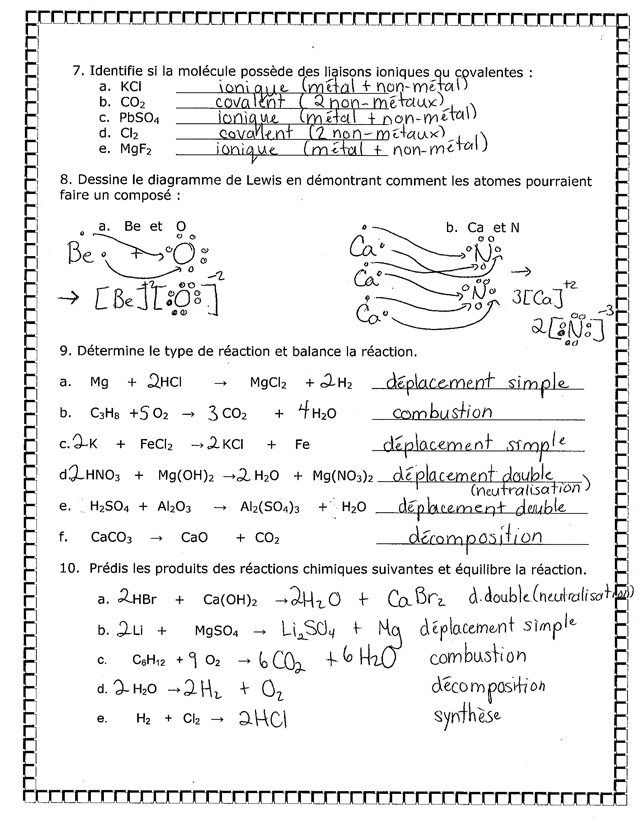 7. Identifie si la molécule possède des liaisons ioniques ou covalentes :
a. KCl ionique (métal + non-métal)
b. CO₂ covalent (2 non-métaux)
c. PbSO₄ ionique (métal + non-métal)
d. Cl₂ covallent (2 non-métaux)
e. MgF₂ ionique (métal + non-métal)
8. Dessine le diagramme de Lewis en démontrant comment les atomes pourraient
faire un composé :
a. Be et O
Be + O
→ [Be]⁺² [O]⁻²
b. Ca et N
Ca N
Ca N →
Ca 3[Ca]⁺²
2[N]⁻³
9. Détermine le type de réaction et balance la réaction.
a. Mg + 2HCl → MgCl₂ + 2H₂ déplacement simple
b. C₃H₈ + 5O₂ → 3CO₂ + 4H₂O combustion
c. 2K + FeCl₂ → 2KCl + Fe déplacement simple
d. 2HNO₃ + Mg(OH)₂ → 2H₂O + Mg(NO₃)₂ déplacement double
(neutralisation)
e. H₂SO₄ + Al₂O₃ → Al₂(SO₄)₃ + H₂O déplacement double
f. CaCO₃ → CaO + CO₂ décomposition
10. Prédis les produits des réactions chimiques suivantes et équilibre la réaction.
a. 2HBr + Ca(OH)₂ → 2H₂O + CaBr₂ d.double (neutralisation)
b. 2Li + MgSO₄ → Li₂SO₄ + Mg déplacement simple
c. C₆H₁₂ + 9O₂ → 6CO₂ + 6H₂O combustion
d. 2H₂O → 2H₂ + O₂ décomposition
e. H₂ + Cl₂ → 2HCl synthèse